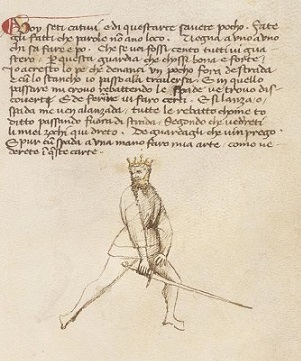 Voy seti cativi e di quest'arte savete pocho. Fate
gli fatti che parole non ano loco. Vegna a uno a uno
chi sa fare e po. Che se voi fossi cento tutti vi gua
stero. Per questa guardia che chossi bona e forte.
Io acresco lo pe che denanci un pocho fora de strada
e cum lo stancho io passo ala traversa. E in quello
passare mi crovo rebattendo le spade ve trovo dis
coverti. E de ferire vi faro certi. E si lanza o
spada me ven alanzada. tutte le rebatto chome to
ditto passando fuora di strada. Segondo che vedreti
li miei zochi qui dreto. De guardagli che v'in prego.
E pur cum spada a una mano faro mia arte. como ve
derete in queste carte.